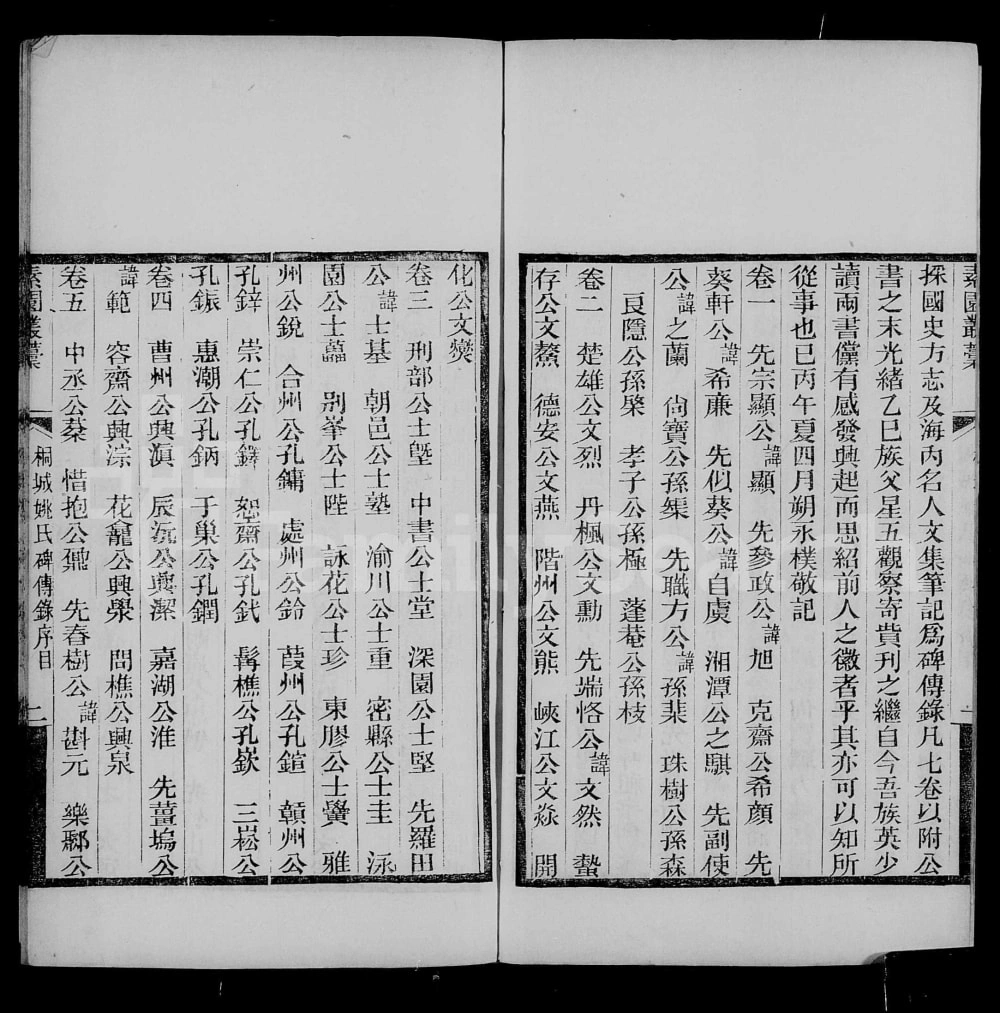 素園叢稾
採國史方志及海內名人文集筆記爲碑傳錄凡七卷以附公
書之末光緒乙巳族父星五觀察寄貲刊之繼自今吾族英少
讀兩書儻有感發興起而思紹前人之徽者乎其亦可以知所
從事也已丙午夏四月朔永樸敬記
卷一 先宗顯公諱顯 先參政公諱旭 克齋公希顏 先
葵軒公諱希廉 先似葵公諱自虞 湘潭公之騏 先副使
公諱之蘭 尙寶公孫榘 先職方公諱孫棐 珠樹公孫森
良隱公孫棨 孝子公孫極 蓬菴公孫枝
卷二 楚雄公文烈 丹楓公文勳 先端恪公諱文然 蟄
存公文鰲 德安公文燕 階州公文熊 峽江公文焱 開
化公文燮
卷三 刑部公士塈 中書公士堂 深園公士堅 先羅田
公諱士基 朝邑公士塾 渝川公士重 密縣公士圭 泳
園公士藟 別峯公士陛 詠花公士珍 東膠公士黌 雅
州公銳 合州公孔鏞 處州公鈴 葭州公孔鍹 贛州公
孔鋅 崇仁公孔鐸 恕齋公孔鉽 髯樵公孔嶔 三崧公
孔鋠 惠潮公孔鈵 于巢公孔鐗
卷四 曹州公興滇 辰沅公興潔 嘉湖公淮 先薑塢公
諱範 容齋公興淙 花龕公興澩 問樵公興泉
卷五 中丞公棻 惜抱公鼐 先春樹公諱斟元 樂郊公
素園叢稾
桐城姚氏碑傳錄序目
二